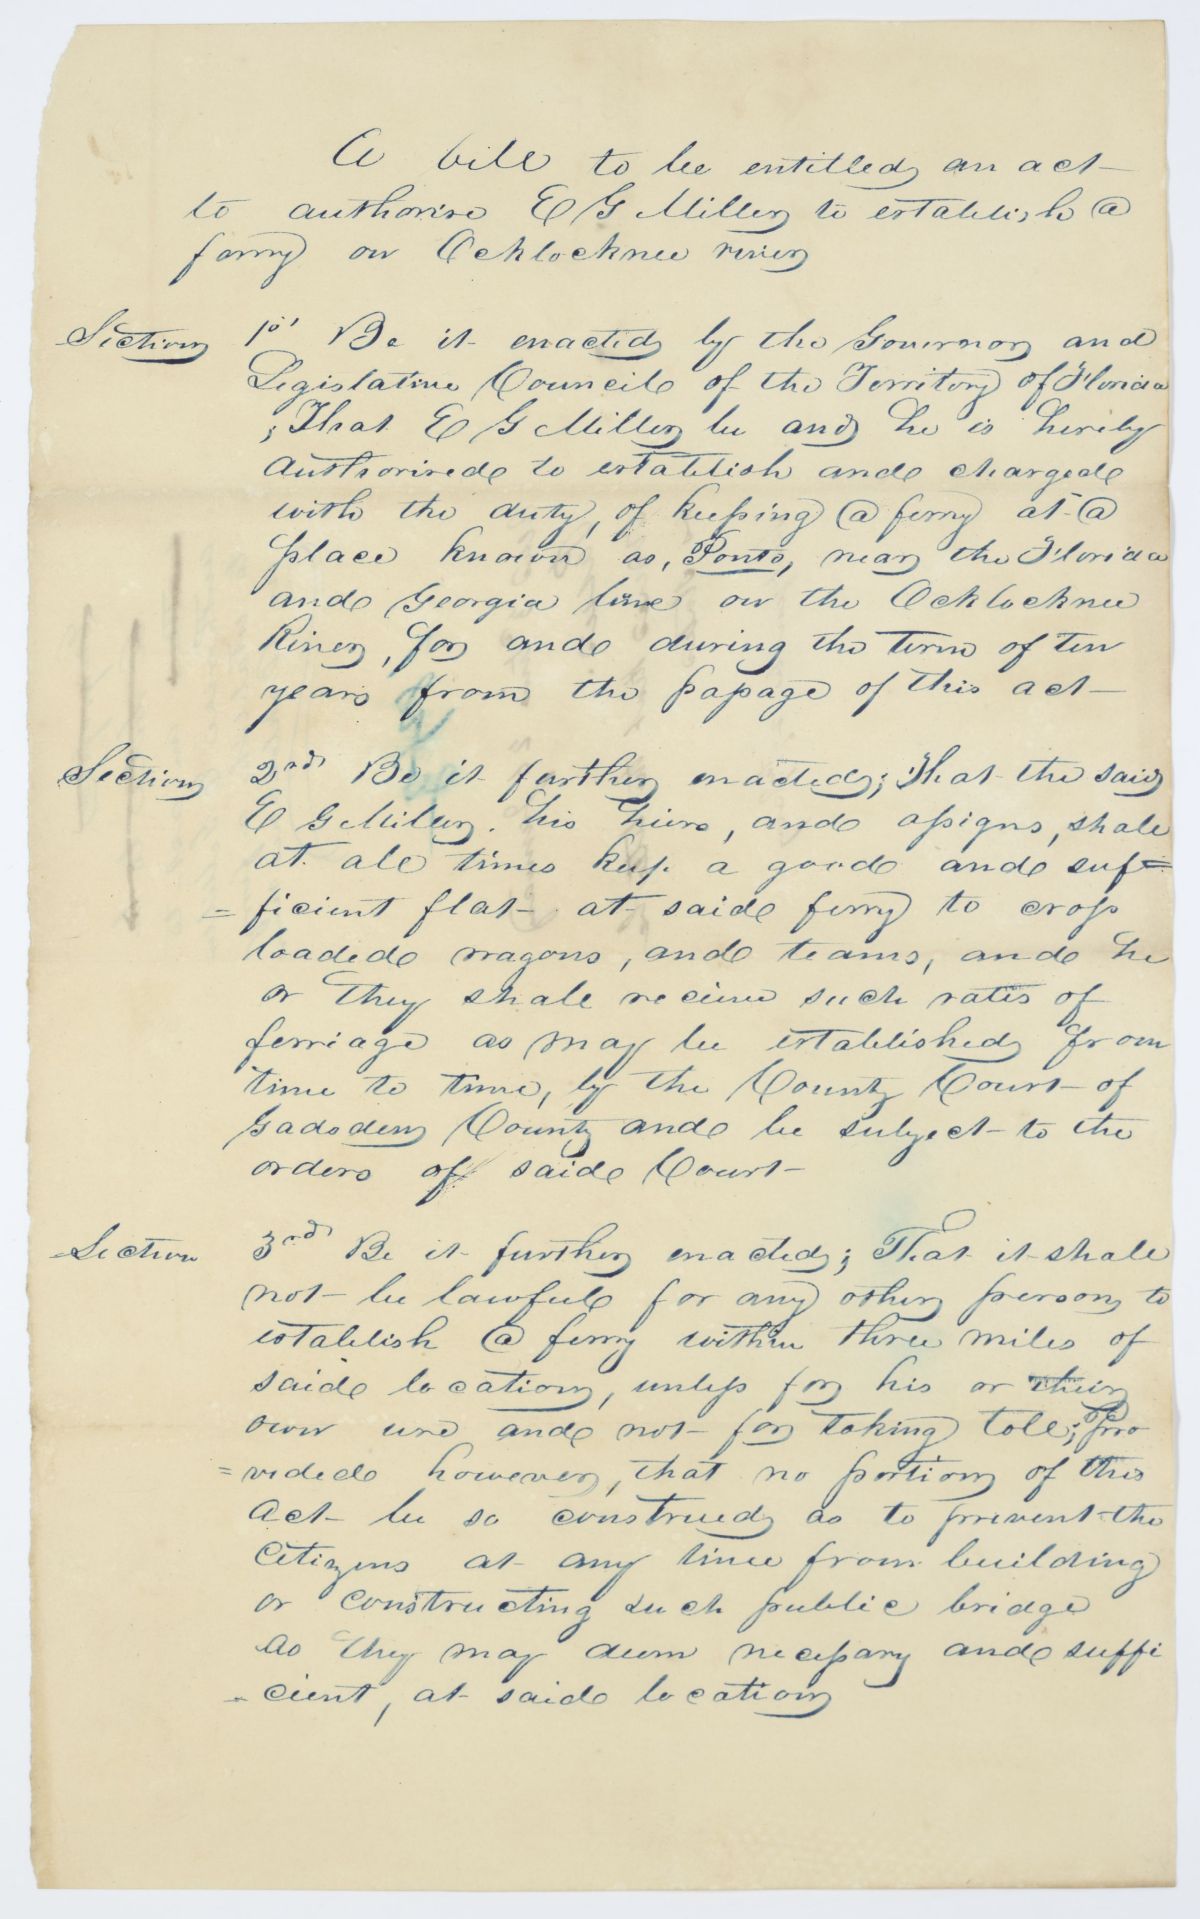 A bill to be entitled an act
to authorise E G Miller to establish a
ferry on Ocklocknee river
Section 1st Be it enacted by the Governor and
Legislative Council of the Territory of Florida
; That E G Miller be and he is hereby
authorised to establish and charged
with the duty, of keeping a ferry at a
place known as, Ponto, near the Florida
and Georgia line on the Ocklocknee
River, for and during the term of ten
years from the passage of this act
Section 2nd Be it further enacted; That the said
E G Miller. his hiers, and assigns, shall
at all times keep a good and suf=
=ficient flat at said ferry to cross
loaded wagons, and teams, and he
or they shall recieve such rates of
ferriage as may be established from
time to time, by the County Court of
Gadsden County and be subject to the
orders of said Court
Section 3rd Be it further enacted; That it shall
not be lawfull for any other person to
establish a ferry within three miles of
said location, unless for his or their
own use and not for taking toll; Pro
=vided however, that no portion of this
act be so construed as to prevent the
Citizens at any time from building
or constructing such public bridge
as they may deem necessary and suffi
-cient, at said location